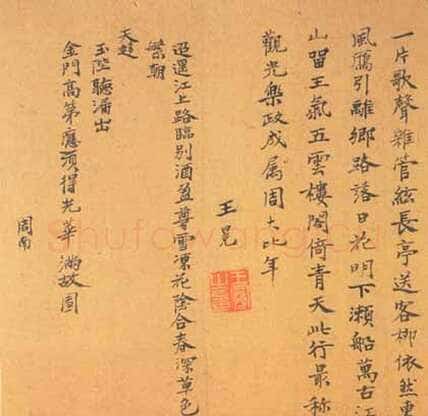 一片歌聲雜管絃長亭送客柳依然東
風鴈引離鄉路落日花明下瀨船萬古江
山留王氣五雲樓閣倚青天此行最称
觀光樂政成属周大比年
王晃
迢遞江上路臨别酒盈尊雪凍花陰合春深草色
繁朝
天趍
玉陛聽出
金門高第應須得光華滿故園
周南
Shufawang.Cn